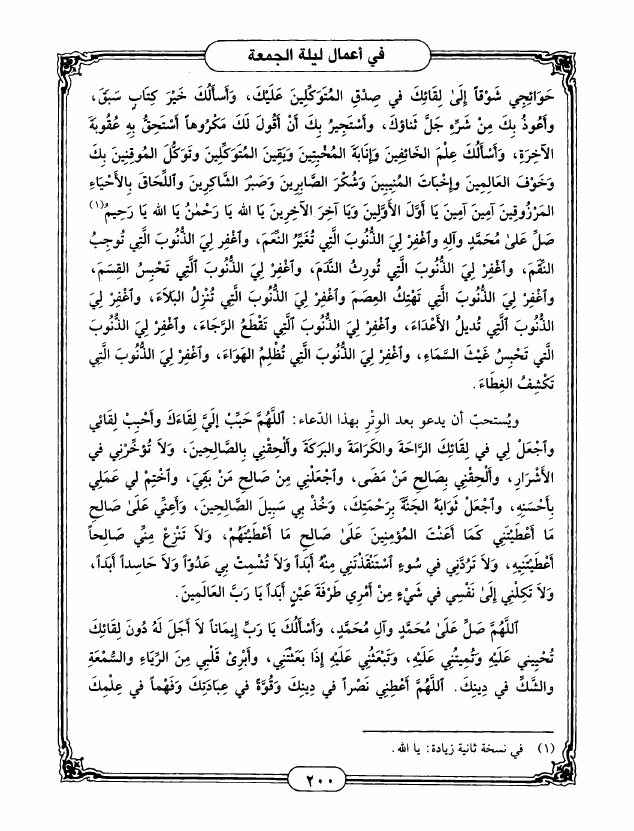 في أعمال ليلة الجمعة
حَوَائِجِي شَوْقاً إِلَىٰ لِقَائِكَ في صِدْقِ المُتَوَكِّلِينَ عَلَيْكَ، وَأَسأَلُكَ خَيْرَ كِتابٍ سَبَقَ،
وأَعُوذُ بِكَ مِنْ شَرِّهِ جَلَّ ثَناؤكَ، وأَسْتَجِيرُ بِكَ أَنْ أَقُولَ لَكَ مَكْرُوهاً أَسْتَحِقُّ بِهِ عُقُوبَةَ
الآخِرَةِ، وَأَسْأَلُكَ عِلْمَ الخَائِفِينَ وَإِنَابَةَ المُخْبِتِينَ وَيَقِينَ المُتَوَكِّلِينَ وتَوَكُّلَ المُوقِنِينَ بِكَ
وَخَوْفَ العَالِمِينَ وإِخْبَاتَ المُنِيبِينَ وَشُكْرَ الصَّابِرِينَ وَصَبْرَ الشَّاكِرِينَ وَاللِّحَاقَ بِالأَحْيَاءِ
المَرْزُوقِينَ آمِينَ آمِينَ يَا أَوَّلَ الأَوَّلِينَ وَيَا آخِرَ الآخِرِينَ يَا الله يَا رَحْمٰنُ يَا الله يَا رَحِيمُ(١)
صَلِّ عَلىٰ مُحَمَّدٍ وآلِهِ وٱغْفِرْ لِيَ الذُّنُوبَ الَّتِي تُغَيِّرُ النِّعَمَ، وٱغْفِر لِيَ الذُّنُوبَ الَّتِي تُوجِبُ
النِّقَمَ، وٱغْفِرْ لِيَ الذُّنُوبَ الَّتِي تُورِثُ النَّدَمَ، وٱغْفِرْ لِيَ الذُّنُوبَ ٱلَّتِي تَحْبِسُ القِسَمَ،
وٱغْفِرْ لِيَ الذُّنُوبَ الَّتِي تَهْتِكُ العِصَمَ وٱغْفِرْ لِيَ الذُّنُوبَ الَّتِي تُنْزِلُ البَلاَءَ، وٱغْفِرْ لِيَ
الذُّنُوبَ ٱلَّتِي تُدِيلُ الأَعْدَاءَ، وٱغْفِرْ لِيَ الذُّنُوبَ ٱلَّتِي تَقْطَعُ الرَّجَاءَ، وٱغْفِرْ لِيَ الذُّنُوبَ
الَّتي تَحْبِسُ غَيْثَ السَّمَاءِ، وٱغْفِرْ لِيَ الذُّنُوبَ الَّتِي تُظْلِمُ الهَوَاءَ، وٱغْفِرْ لِيَ الذُّنُوبَ الَّتِي
تَكْشِفُ الغِطَاءَ.
ويُستحبّ أن يدعو بعد الوِتْرِ بهذا الدّعاء: اَللَّهُمَّ حَبِّبْ إِلَيَّ لِقَاءَكَ وأَحْبِبْ لِقائي
وٱجْعَلْ لِي في لِقَائِكَ الرَّاحَةَ والكَرَامَةَ والبَرَكَةَ وأَلْحِقْنِي بِالصَّالِحِينَ، وَلاَ تُؤخِّرْنِي في
الأَشْرَارِ، وأَلْحِقْنِي بِصَالِحِ مَنْ مَضَى، وٱجْعَلْنِي مِنْ صَالِحِ مَنْ بَقِيَ، وٱخْتِمْ لي عَمَلِي
بِأَحْسَنِهِ، وٱجْعَلْ ثَوَابَهُ الجَنَّةَ بِرَحْمَتِكَ، وَخُذْ بِي سَبِيلَ الصَّالِحِينَ، وَأَعِنِّي عَلَىٰ صَالِحِ
مَا أَعْطَيْتَنِي كَمَا أَعَنْتَ المُؤمِنِينَ عَلَىٰ صَالِحِ مَا أَعْطَيْتَهُمْ، وَلاَ تَنْزِعْ مِنِّي صَالِحاً
أَعْطَيْتَنِيهِ، وَلاَ تَرُدَّنِي في سُوءٍ ٱسْتَنْقَذْتَنِي مِنْهُ أَبَداً وَلاَ تُشْمِتْ بِي عَدُوّاً وَلاَ حَاسِداً أَبَداً،
وَلاَ تَكِلْنِي إِلَىٰ نَفْسِي في شَيْءٍ مِنْ أَمْرِي طَرْفَةَ عَيْنٍ أَبَداً يَا رَبَّ العَالَمِينَ.
اَللَّهُمَّ صَلِّ عَلىٰ مُحَمَّدٍ وآلِ مُحَمَّدٍ، وَأَسْأَلُكَ يَا رَبِّ إِيمَاناً لاَ أَجَلَ لَهُ دُونَ لِقَائِكَ
تُحْيِينِي عَلَيْهِ وَتُمِيتُنِي عَلَيْهِ، وَتَبْعَثُنِي عَلَيْهِ إِذَا بَعَثْتَنِي، وَأَبْرِئْ قَلْبِي مِنَ الرِّيَاءِ وَالسُّمْعَةِ
والشَّكِّ في دِينِكَ. اَللَّهُمَّ أَعْطِنِي نَصْراً في دِينِكَ وَقُوَّةً في عِبَادَتِكَ وَفَهْماً في عِلْمِكَ
(١) في نسخة ثانية زيادة: يا الله.
٢٠٠